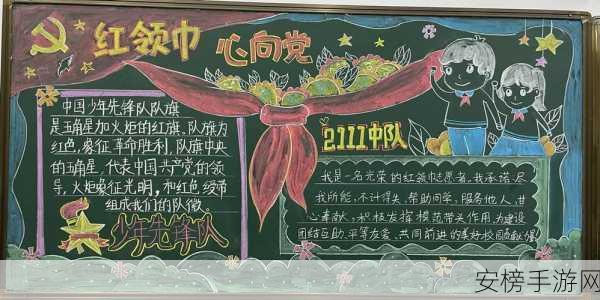 红领巾 心向党
中国少年先锋队队旗
是五角星加火炬的红旗,队旗为
红色,象征革命胜利,队旗中央
的五角星,代表中国共产党的领
导,火炬象征光明,和红色绶带
组成我们的队徽。
少年先锋队
2111中队
我是一名光荣的红领巾志愿者。我承诺:尽
我所能,不计得失,帮助同学,服务他人,甘
心奉献,积极发挥模范带头作用,为建设
团结互助、平等友爱、共同前进的美好校园贡献
安榜手游网